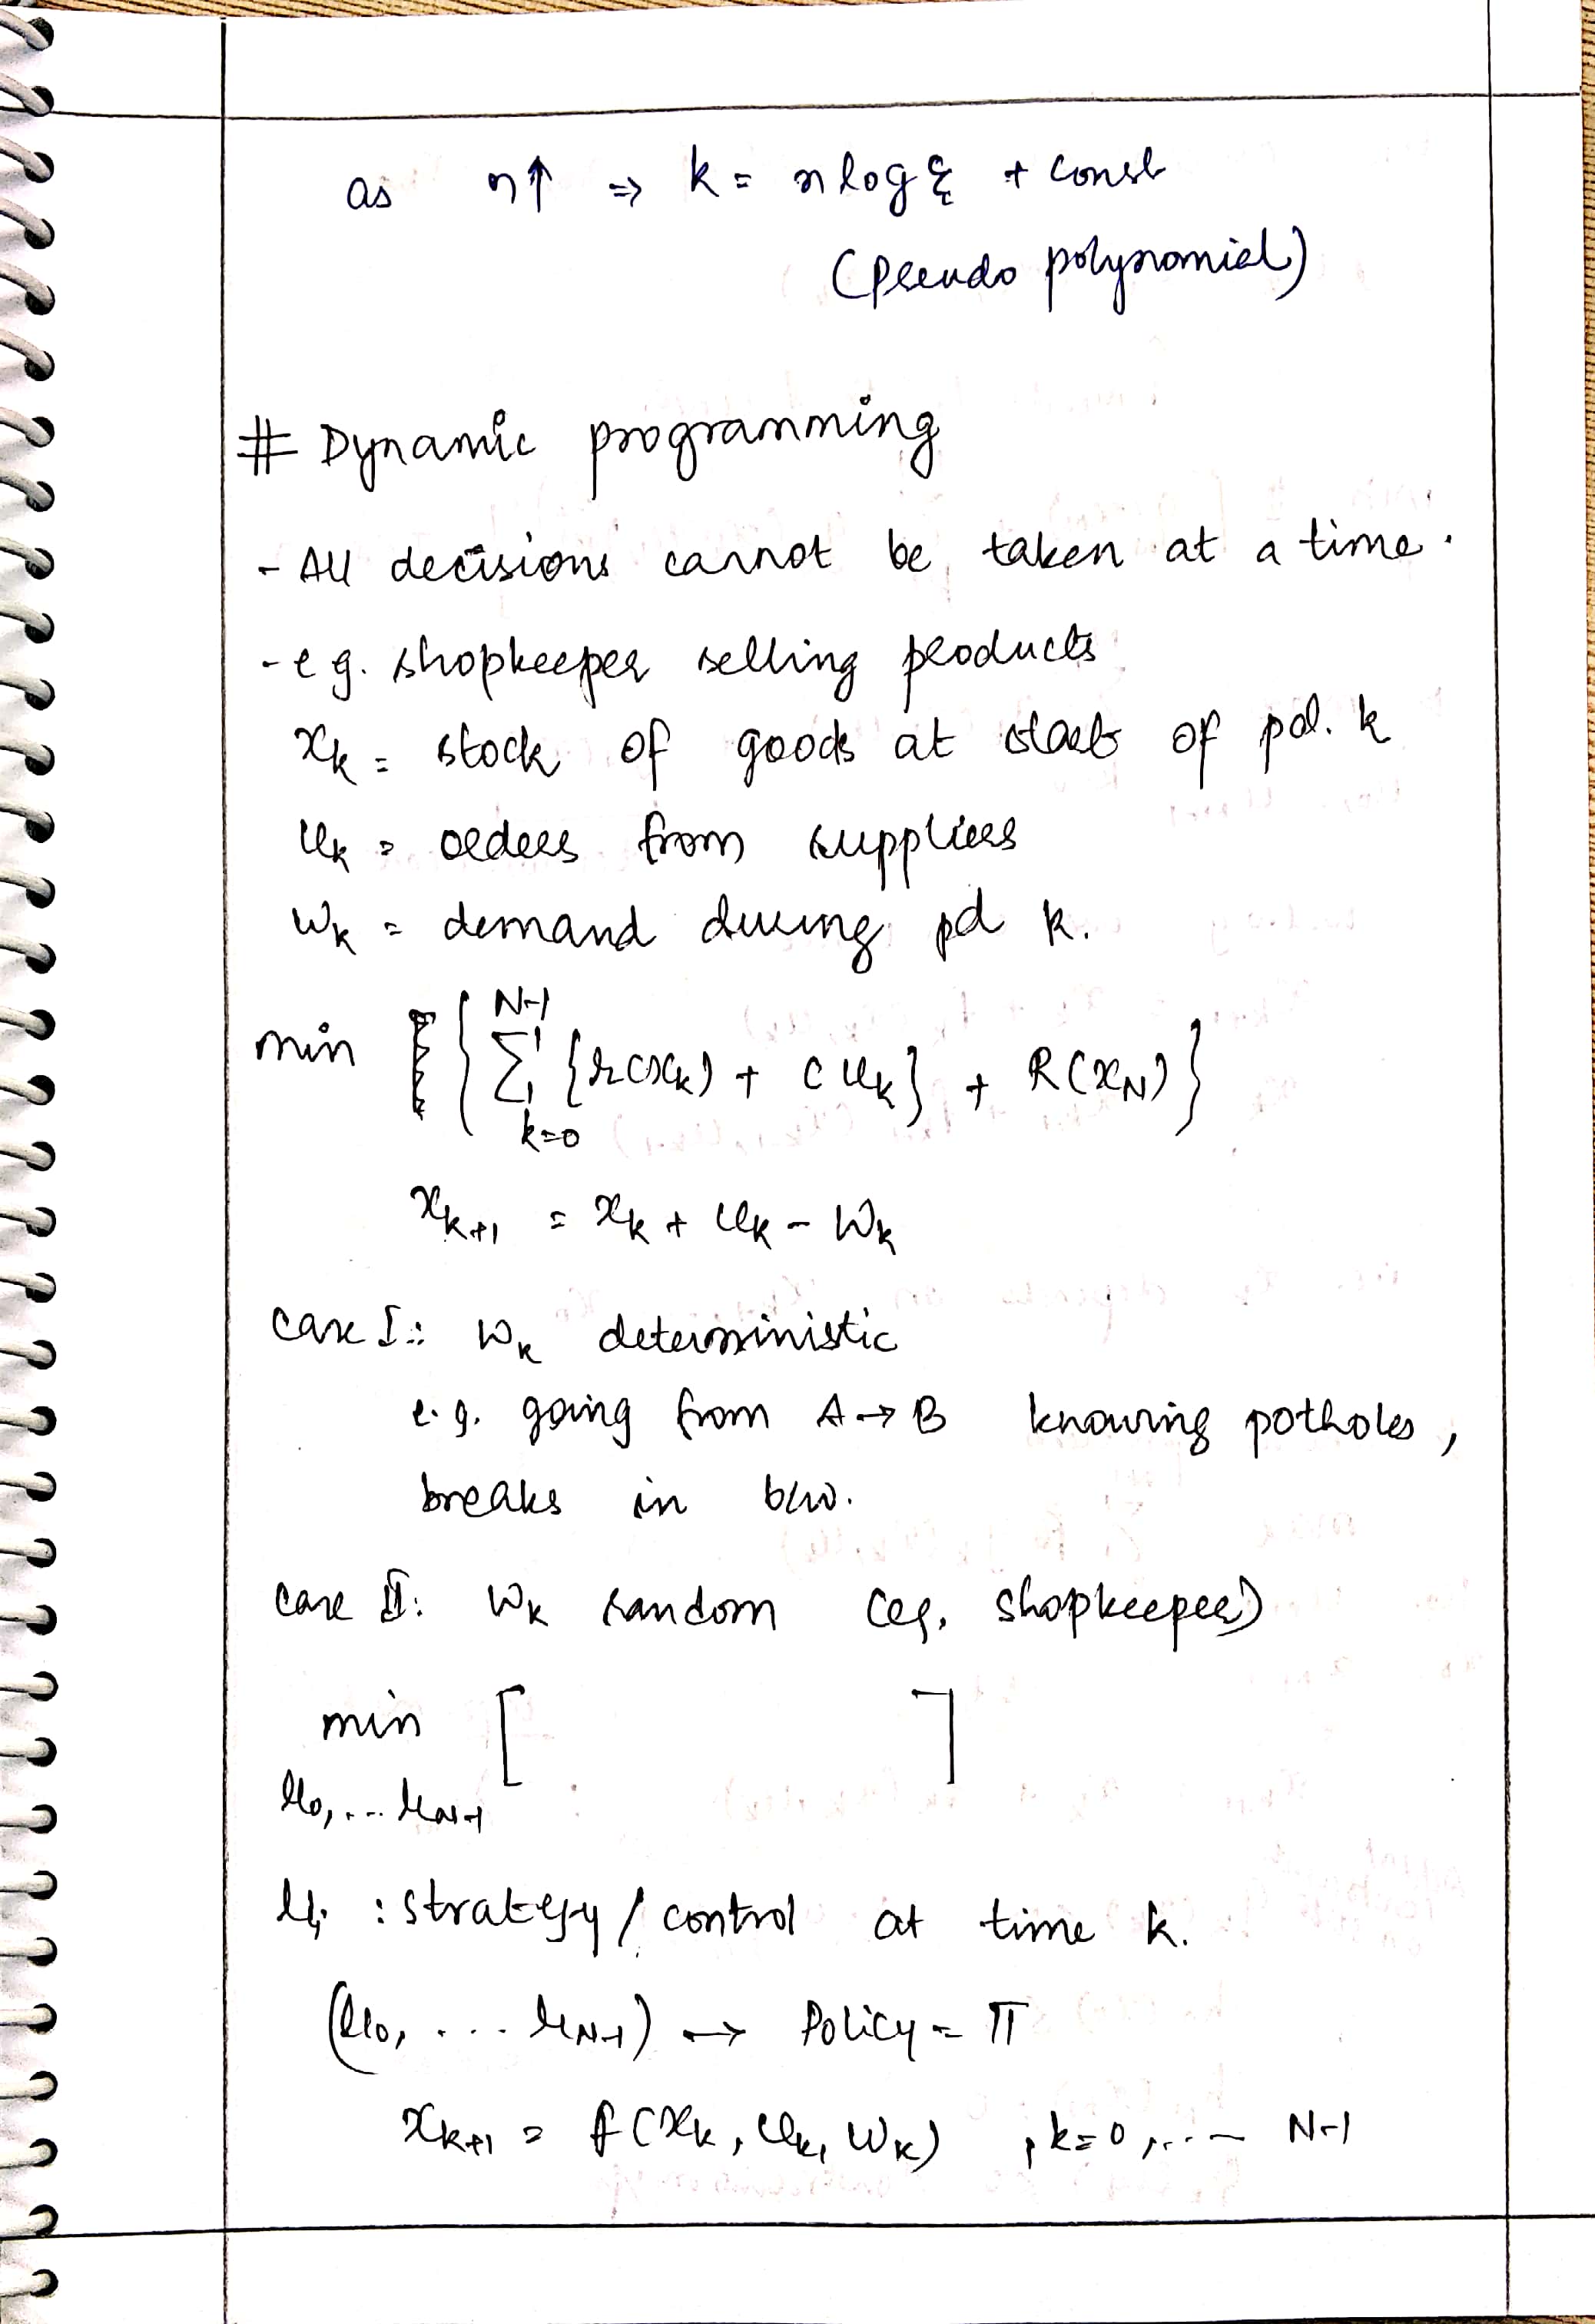 as n↑ ⇒ k = n log ξ + const
(pseudo polynomial)
# Dynamic programming
- All decisions cannot be taken at a time.
- eg. shopkeeper selling products
xₖ = stock of goods at start of pd. k
uₖ = orders from suppliers
wₖ = demand during pd k.
min { N-1 Σ k=0 {r(xₖ) + c uₖ} + R(x_N) }
xₖ₊₁ = xₖ + uₖ - wₖ
case I: wₖ deterministic
e.g. going from A → B knowing potholes,
breaks in b/w.
case II: wₖ random (eg. shopkeeper)
min [ ]
μ₀, ... μ_N-1
: strategy / control at time k.
(μ₀, ... μ_N-1) → Policy = π
xₖ₊₁ = f(xₖ, uₖ, wₖ) , k=0, ... N-1